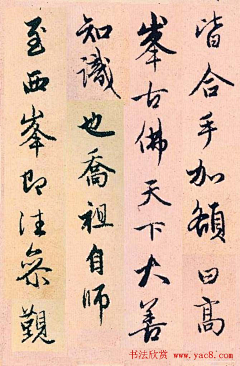 皆合手加額曰高
峯古佛天下大善
知識也喬祖自師
至西峯即往叅觀
书法欣赏
www.yac8.com